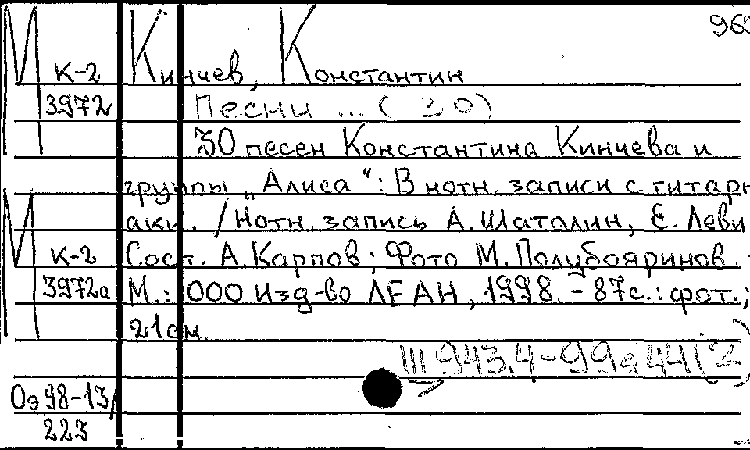 968
М К-2 Кинчев, Константин
3972 Песни ... (30)
30 песен Константина Кинчева и
группы „Алиса“: В нотн. записи с гитарн
акк. / Нотн. запись А. Шаталин, Е. Леви
М К-2 Сост. А. Карпов; Фото М. Полубояринов. -
3972а М.: ООО Изд-во ЛЕАН, 1998. - 87с.: фот.;
21см.
Ш 943.4-99
Од 98-13/
223